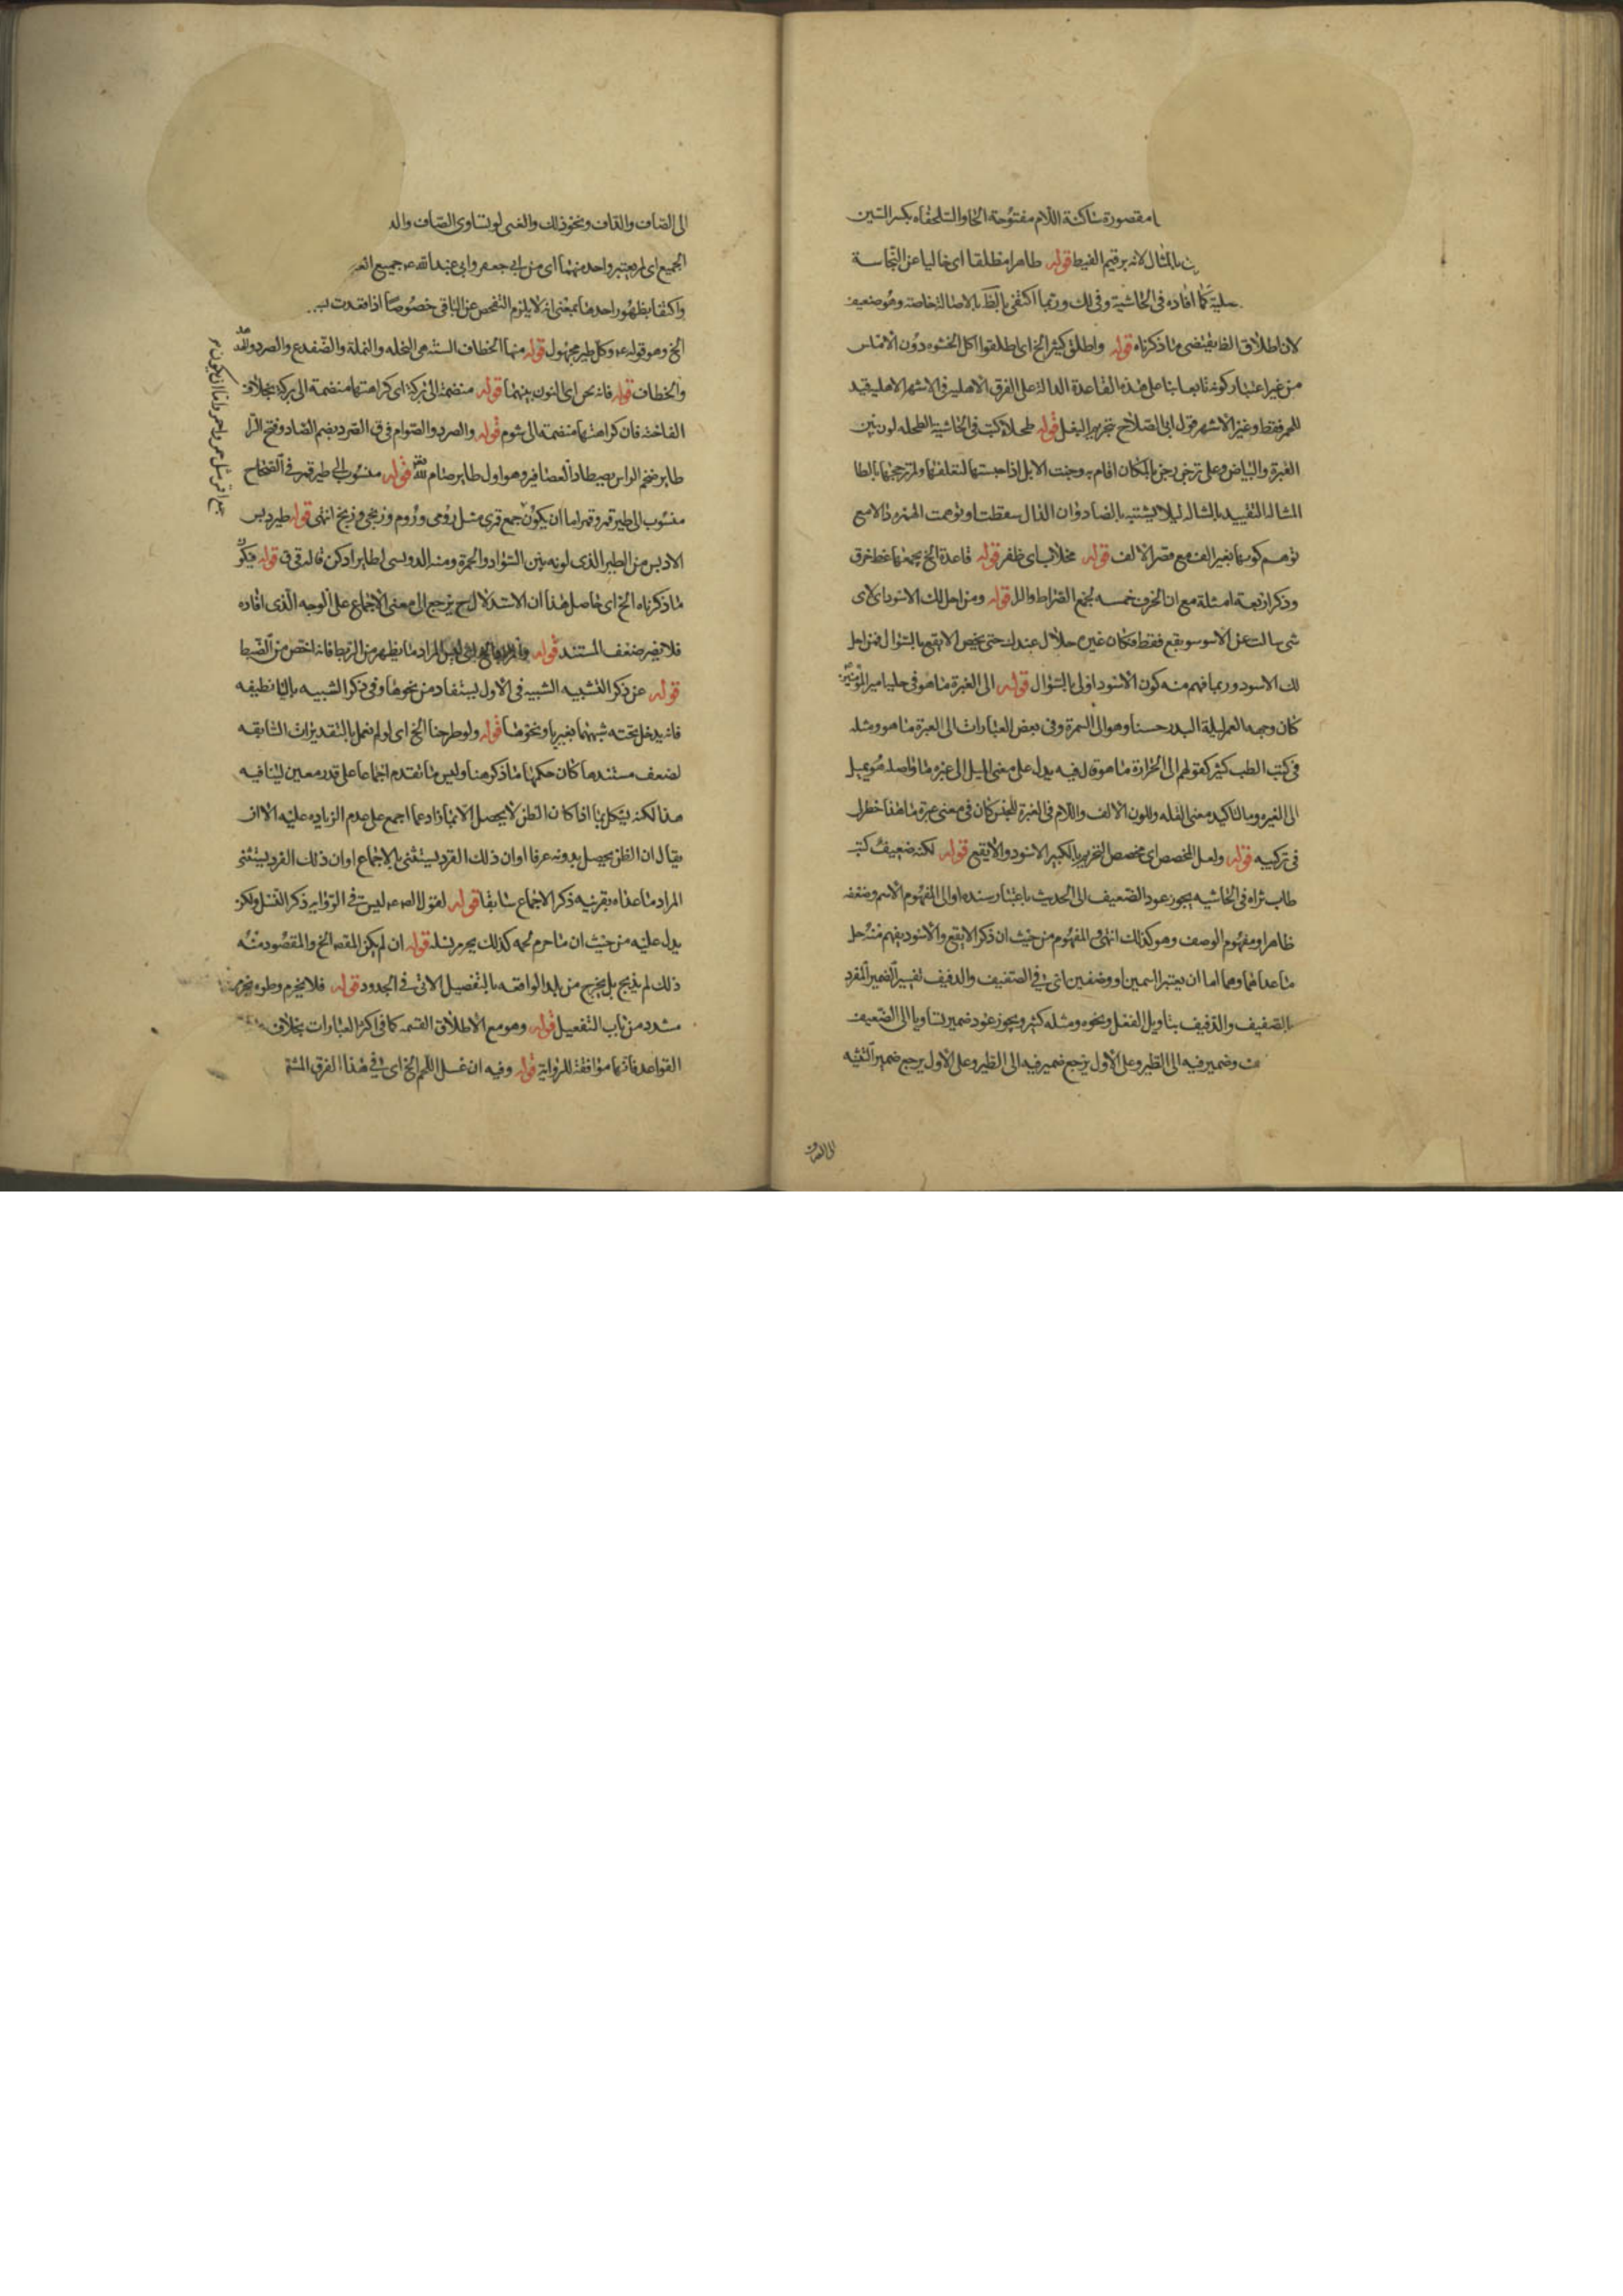 مقصورة ساكنة اللام مفتوحة الحا والسلحفاه بكسر السين
بالمثال لانه برقيم الغيط قوله طاهرا مطلقا اى خاليا عن النجاسة
كما افاده فى الحاشية وفى لك وربما اكتفى بالاصالة خاصة وهو ضعيف
لان اطلاق الفا يقتضى ما ذكرناه قوله واطلق كثير الخ اى اطلقوا اكل الخشوه دون الاملس
من غير اعتبار كونه تابعا بنا على هذه القاعدة الدالة على الفرق الاهلية فى الاشهر الاهلية قيد
للحمر فقط وغير الاشهر قول ابى الصلاح بتحريم البغل قوله طحلاء كتب فى الحاشية الطحله لون بين
الغبرة والبياض وعلى ترخى رجن بالمكان اقام به وجنت الابل اذا حبستها لتعلفها ولم ترحجها بالطا
المشاله التقييد بالمشاله ليلا يشتبه بالضاد وان الدال سقطت او توهمت الهمزه دالا مع
توهم كونها بغير الف مع قصر الالف قوله مخلاب اى ظفر قوله قاعدة الخ يجمعها غط خرق
وذكر اربعة امثلة مع ان الحرف خمسه لجمع الضراط والل قوله ومن احل لك الاسود اى لاى
شى سالت عن الاسود وبقع فقط فكان غيره حلال عندك حتى يخص الابقع بالسؤال فمن احل
لك الاسود وربما فهم منه كون الاسود اولى بالسؤال قوله الى الغبرة ما هو فى حليا امير المؤمنين
كان وجهه القمر ليلة البدر حسنا وهو الى السمرة وفى بعض العبارات الى الغبرة ما هو ومثله
فى كتب الطب كثير كقولهم الى الحرارة ما هو قوله فيه يدل على معنى الميل الى غبره ما واصله هو يميل
الى الغبره وما لتاكيد معنى القله وللون الالف واللام فى الغبرة للجنس كان فى معنى غبرة ما هذا خطر لى
فى تركيبه قوله ولعل المخصص اى مخصص التحريم بالكبير الاسود والابقع قوله لكنه ضعيف كتب
طاب ثراه فى الحاشيه يجوز عود الضعيف الى الحديث باعتبار سنده او الى المفهوم الاسم وضعفه
ظاهر او مفهوم الوصف وهو كذلك انتهى المفهوم من حيث ان ذكر الابقع والاسود يفهم منه حل
ما عداهما وهما اما ان يعتبر اسمين او وصفين اتى فى الصفيف والدفيف تفسير الضمير المفرد
بالصفيف والدفيف بتاويل الفعل ونحوه ومثله كثير ويجوز عود ضمير تساويا الى الصفيف
وضمير فيه الى الطير وعلى الاول يرجع ضمير فيه الى الطير وعلى الاول يرجع ضمير التثنيه
الى الصاف
الى الصاف والداف ونحو ذلك والغبى لو تساوى الصاف والد
الجميع اى لم يعتبر واحد منهما اى من ابى جعفر وابى عبد الله ع جميع
واكتفا بظهور احدها بمعنى انه لا يلزم التفحص عن الباقى خصوصا اذا فقدت
الخ وهو قوله ع وكل طير مجهول قوله منها الخطاف الستة هى النحله والنملة والضفدع والصرد والهدهد
والخطاف قوله فانه نحن اى النون بينهما قوله منضمة الى بركة اى كراهتها منضمة الى بركة بخلاف
الفاخته فان كراهتها منضمة الى شوم قوله والصرد والصوام فى ق الصرد بضم الصاد وفتح الرا
طاير ضخم الراس يصطاد العصافير وهو اول طاير صام لله قوله منسوب الى طير قمر فى الصحاح
منسوب الى طير قمر وقمر اما ان يكون جمع قمرى مثل رومى وروم وزنجى وزنج انتهى قوله طير دبس
الادبس من الطير الذى لونه بين السواد والحمرة ومنه الدوبسى لطاير ادكن قاله فى ق قوله فيكون
ما ذكرناه الخ اى حاصل هذا ان الاستدلال ح يرجع الى معنى الاجماع على الوجه الذى افاده
فلا يضر ضعف المستند قوله المراد ما يظهر من الربط فانه اخص من الضبط
قوله عن ذكر التشبيه الشبيه فى الاول يستفاد من نحوها وفى ذكر الشبيه بالثا نظيفه
فانه يدخل تحته شبهها بغيرها ونحوها قوله ولو طرحنا الخ اى لو لم نعمل بالتقديرات السابقه
لضعف مستندها كان حكمها ما ذكر هنا وليس ما تقدم اجماعا على قدر معين لينافيه
هذا لكنه يشكل بما اذا كان الظن لا يحصل الا بما زاد عما اجمع على عدم الزياده عليه الا ان
يقال ان الظن يحصل بدونه عرفا او ان ذلك الفرد يستثنى بالاجماع او ان ذلك الفرد يستثنى
المراد ما عداه بقرنيه ذكر الاجماع سابقا قوله لقول الص ع ليس فى الرواية ذكر النسل ولكن
يدل عليه من حيث ان ما حرم لحمه كذلك يحرم نسله قوله ان لم يكن المقصود الخ والمقصود منه
ذلك لم يذبح بل يخرج من بلد الواقعه بالتفصيل الاتى فى الحدود قوله فلا يحرم وطوه يحرم
مشدد من باب التفعيل قوله وهو مع الاطلاق القسمه كما فى اكثر العبارات بخلاف
القواعد فانها موافقة للرواية قوله وفيه ان غسل اللحم الخ اى فى هذا الفرق